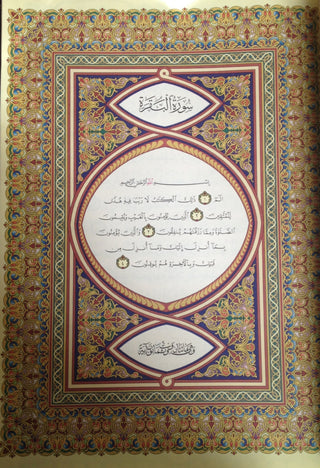 سُورَةُ الْبَقَرَةِ
بِسْمِ اللَّهِ الرَّحْمَٰنِ الرَّحِيمِ
الٓمٓ ١ ذَٰلِكَ الْكِتَٰبُ لَا رَيْبَ فِيهِ هُدًى
لِّلْمُتَّقِينَ ٢ الَّذِينَ يُؤْمِنُونَ بِالْغَيْبِ وَيُقِيمُونَ
الصَّلَوٰةَ وَمِمَّا رَزَقْنَٰهُمْ يُنفِقُونَ ٣ وَالَّذِينَ يُؤْمِنُونَ
بِمَا أُنزِلَ إِلَيْكَ وَمَا أُنزِلَ مِن
قَبْلِكَ وَبِالْءَاخِرَةِ هُمْ يُوقِنُونَ ٤